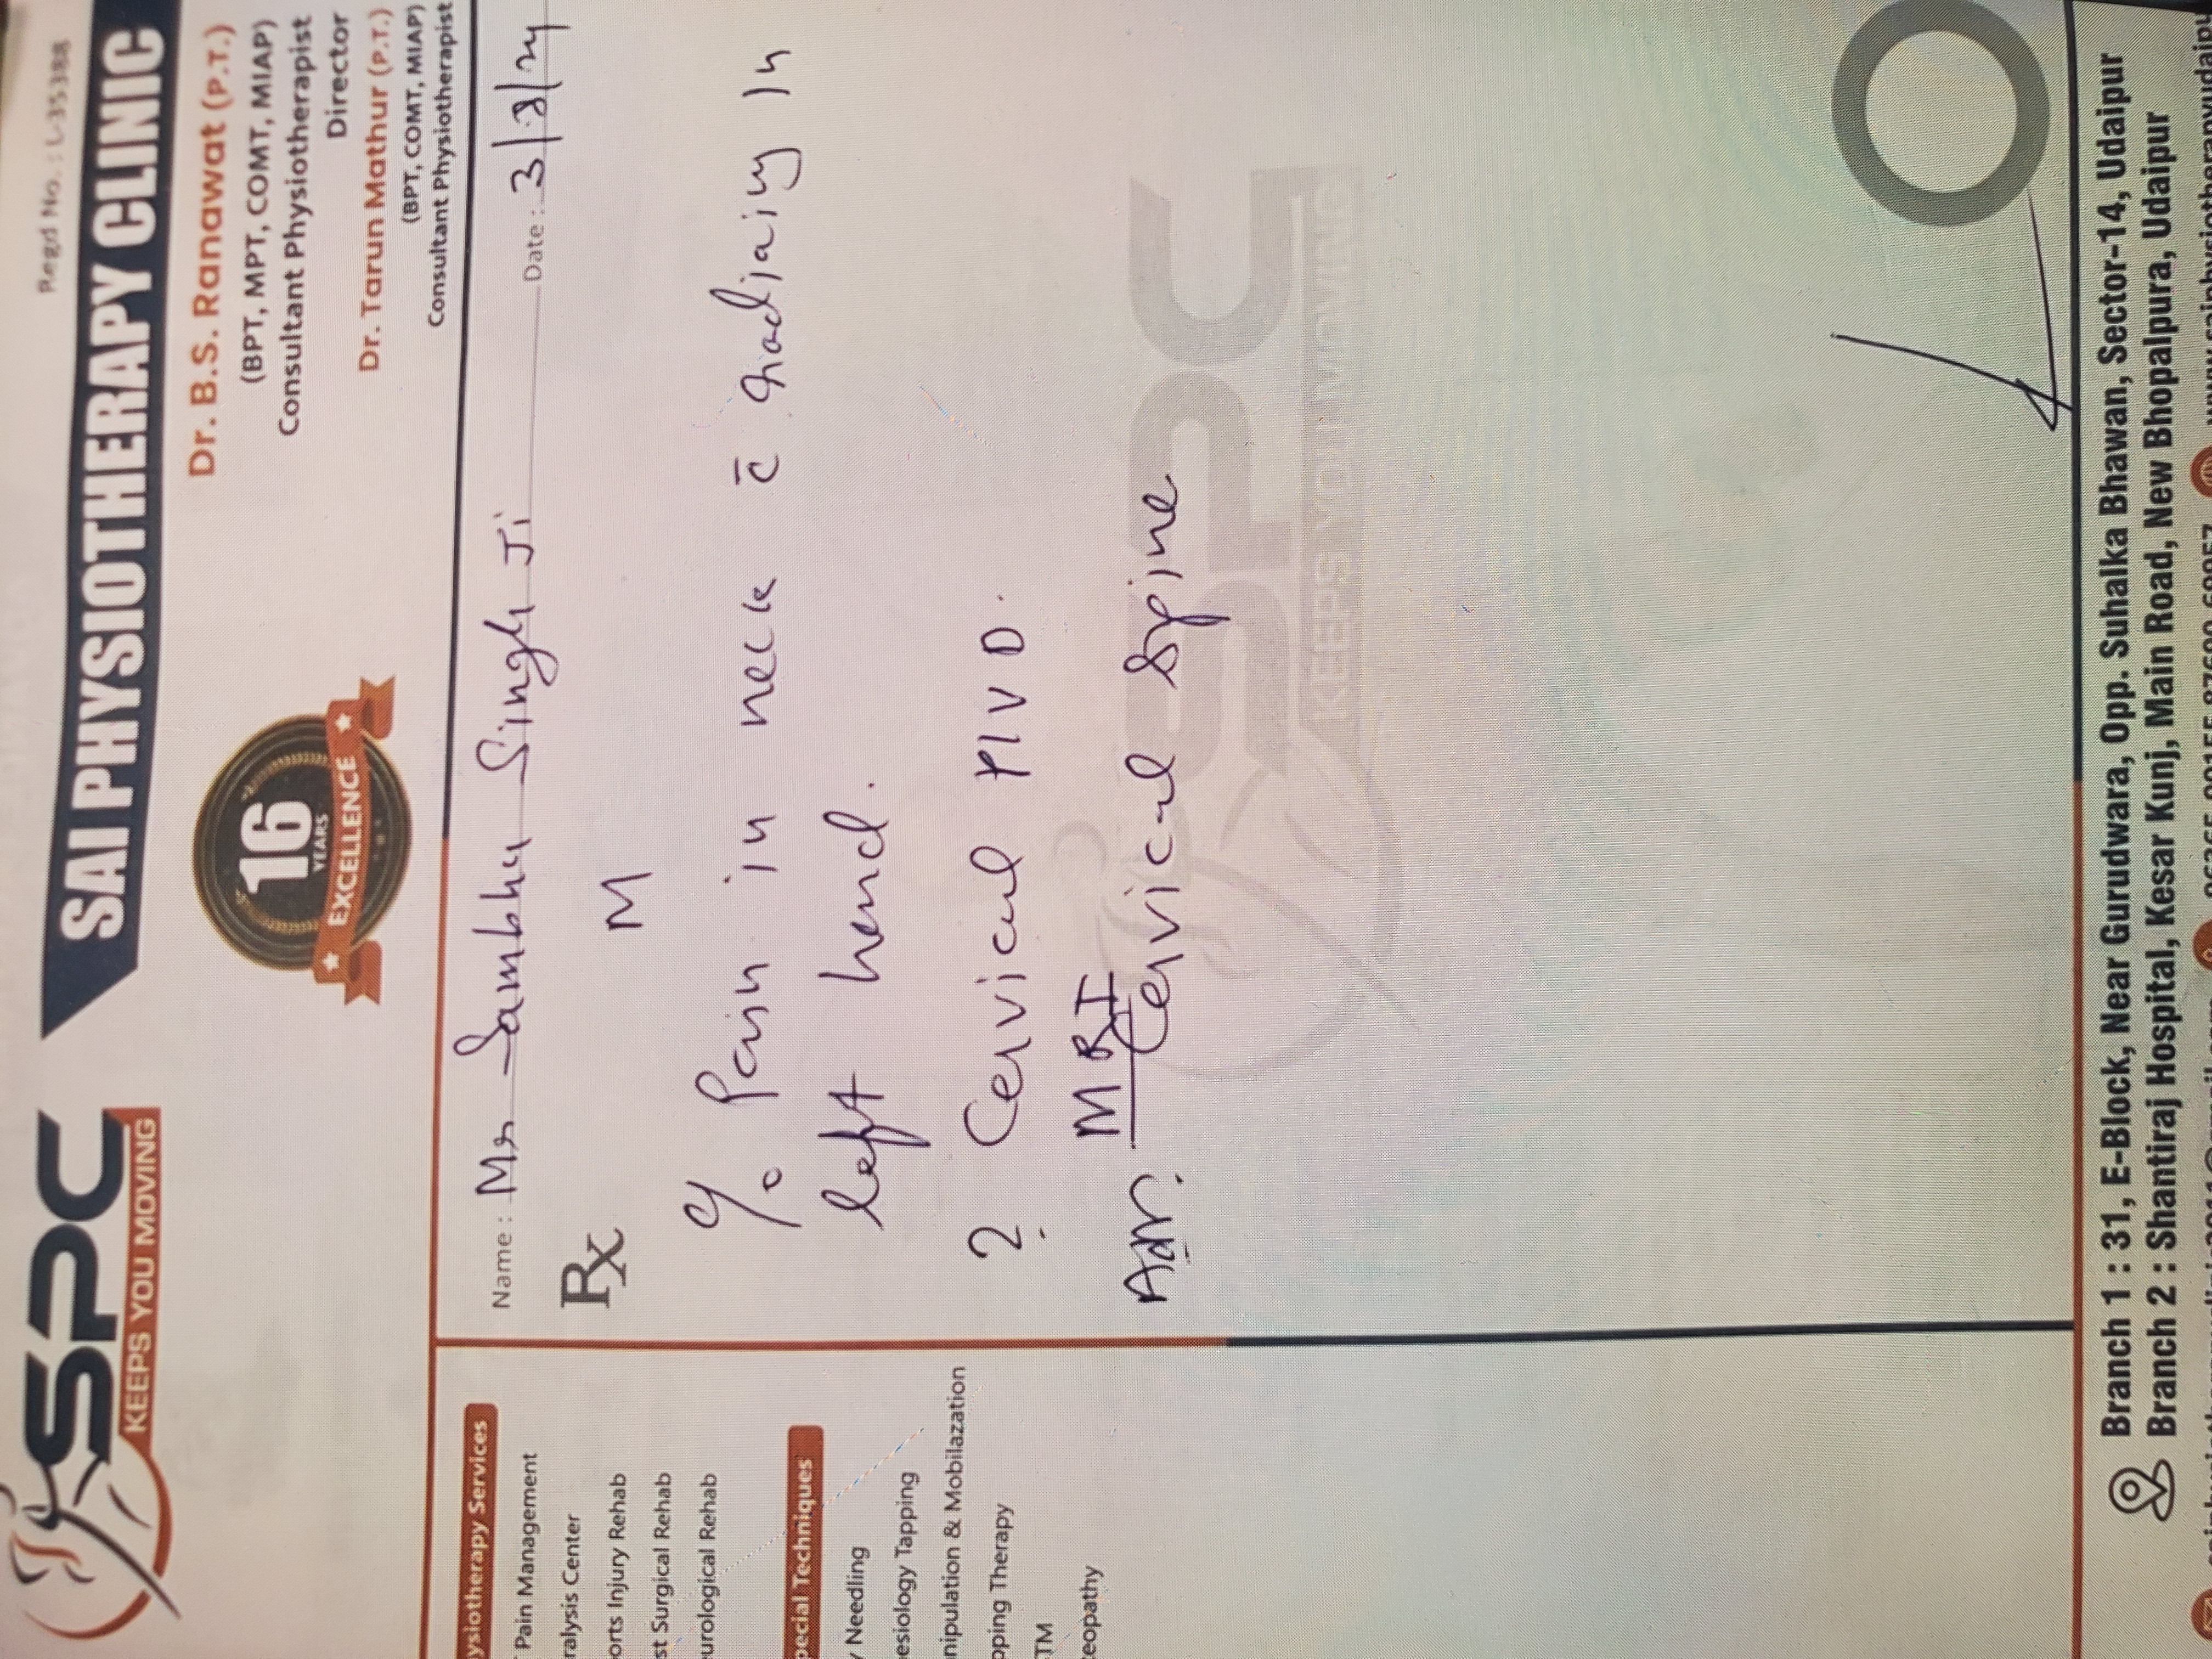 Regd No. : L-35388
SPC
KEEPS YOU MOVING
SAI PHYSIOTHERAPY CLINIC
16
YEARS
EXCELLENCE
Dr. B.S. Ranawat (P.T.)
(BPT, MPT, COMT, MIAP)
Consultant Physiotherapist
Director
Dr. Tarun Mathur (P.T.)
(BPT, COMT, MIAP)
Consultant Physiotherapist
ysiotherapy Services
Pain Management
ralysis Center
orts Injury Rehab
st Surgical Rehab
urological Rehab
pecial Techniques
y Needling
esiology Tapping
nipulation & Mobilazation
pping Therapy
TM
teopathy
Name : Mr Sambhu Singh Ji Date : 3/8/24
Rx
M
c/o Pain in neck c̄ radiaiy in
left hand.
? Cervical PIVD.
Adv. MRI
Cervical Spine
SPC
KEEPS YOU MOVING
Branch 1 : 31, E-Block, Near Gurudwara, Opp. Suhalka Bhawan, Sector-14, Udaipur
Branch 2 : Shantiraj Hospital, Kesar Kunj, Main Road, New Bhopalpura, Udaipur